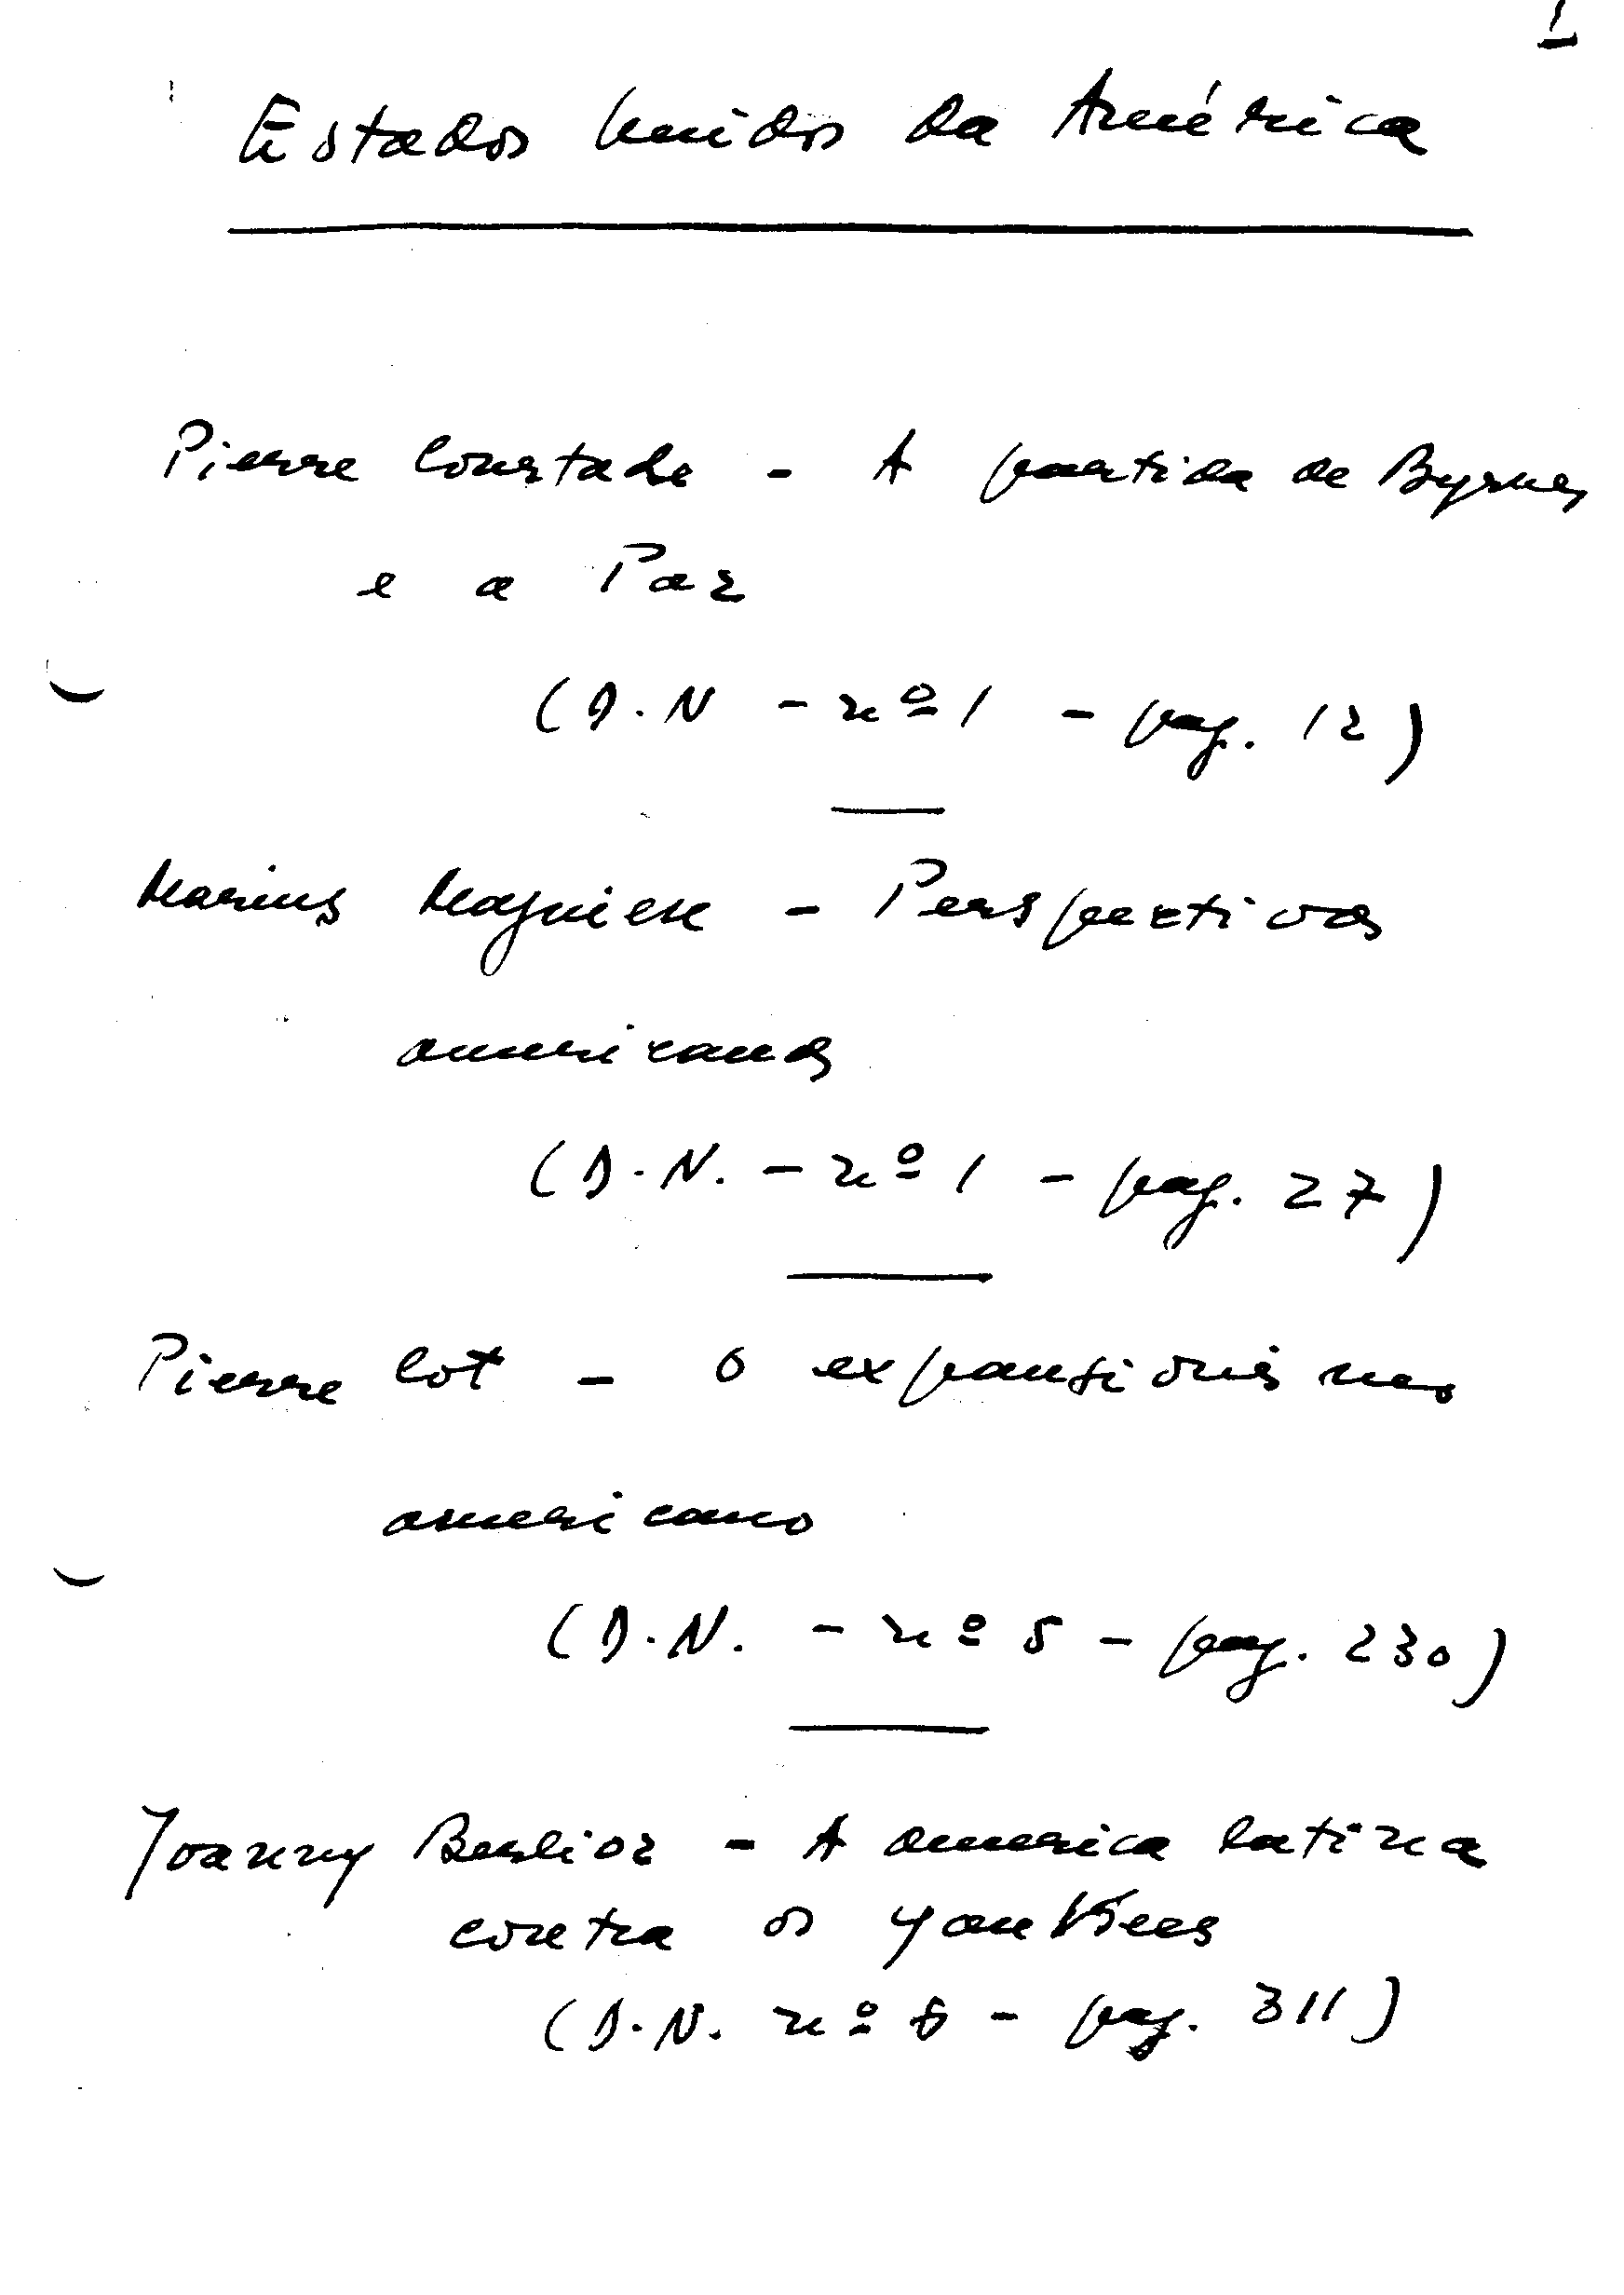 1
Estados Unidos da América
Pierre Courtade - A partida de Byrnes
e a Paz
(D.N - nº 1 - pag. 12)
Marius Magnien - Perspectivas
americanas
(D.N. - nº 1 - pag. 27)
Pierre Cot - O expansionismo
americano
(D.N. - nº 5 - pag. 230)
Joanny Berlioz - A america latina
contra os yankees
(D.N. nº 6 - pag. 311)